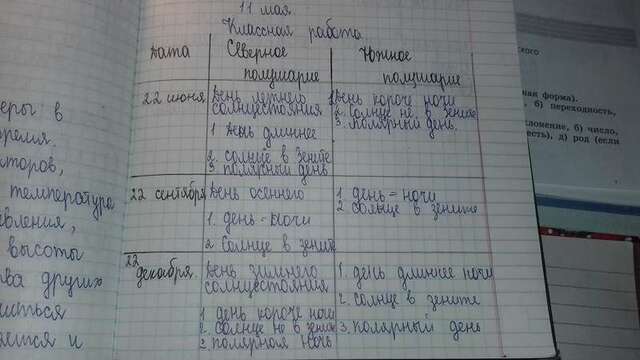 11 мая
Классная работа.
Дата
Северное
полушарие
Южное
полушарие
22 июня
День летнего
солнцестояния
1 День длиннее
2. солнце в зените
3 полярный день
1День короче ночи
2 солнце не в зените
3. полярный день.
22 сентября
День осеннего
1. день = ночи
2 Солнце в зените
1. день = ночи
2 солнце в зените
22
декабря.
День зимнего
солнцестояния
1 день короче ночи
2. солнце не в зените
3. полярная ночь
1. день длинее ночи
2. солнце в зените
3. полярный день
еры в
температура
высоты
ва других
ется и
ского
ная форма).
б) переходность,
лонение, б) число,
есть), д) род (если